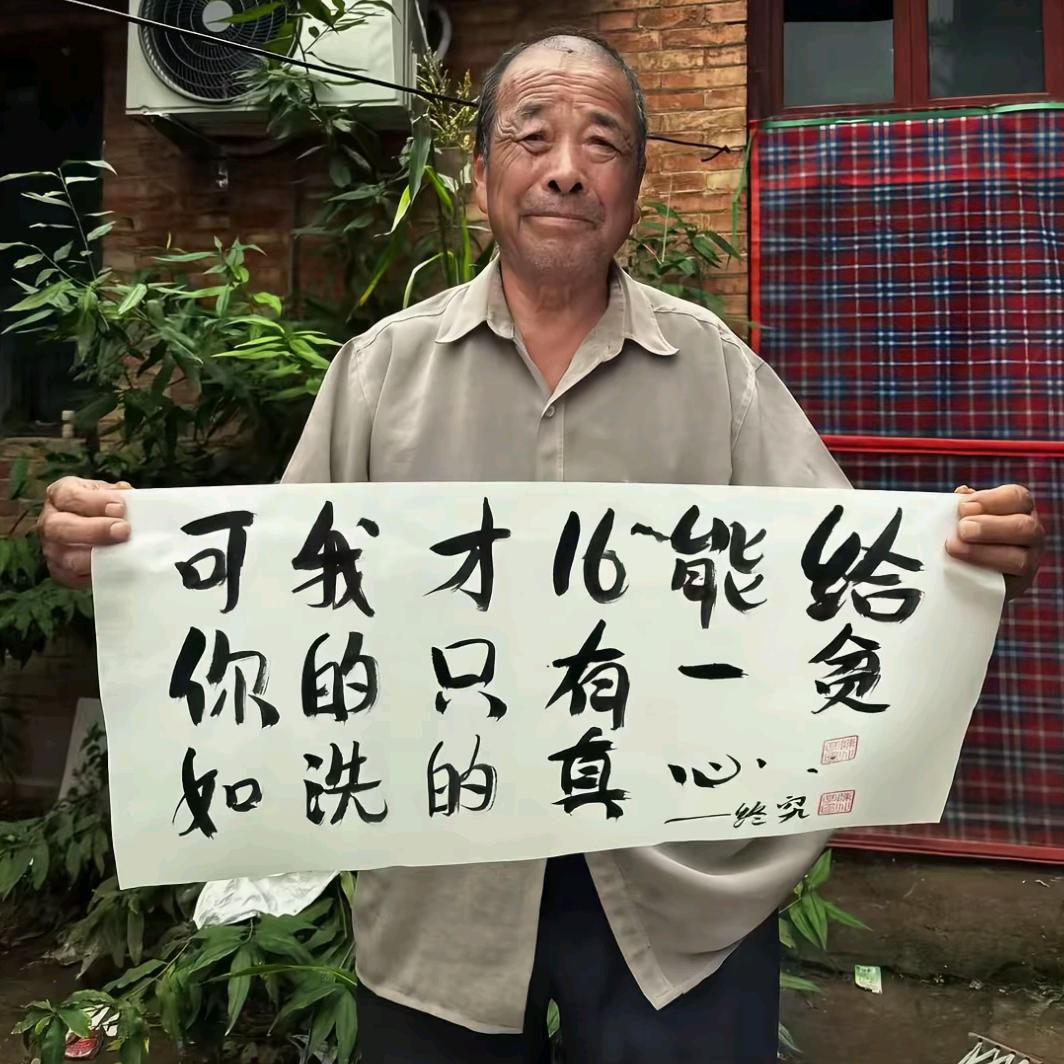 可我才16能给
你的只有一贫
如洗的真心..
——终究